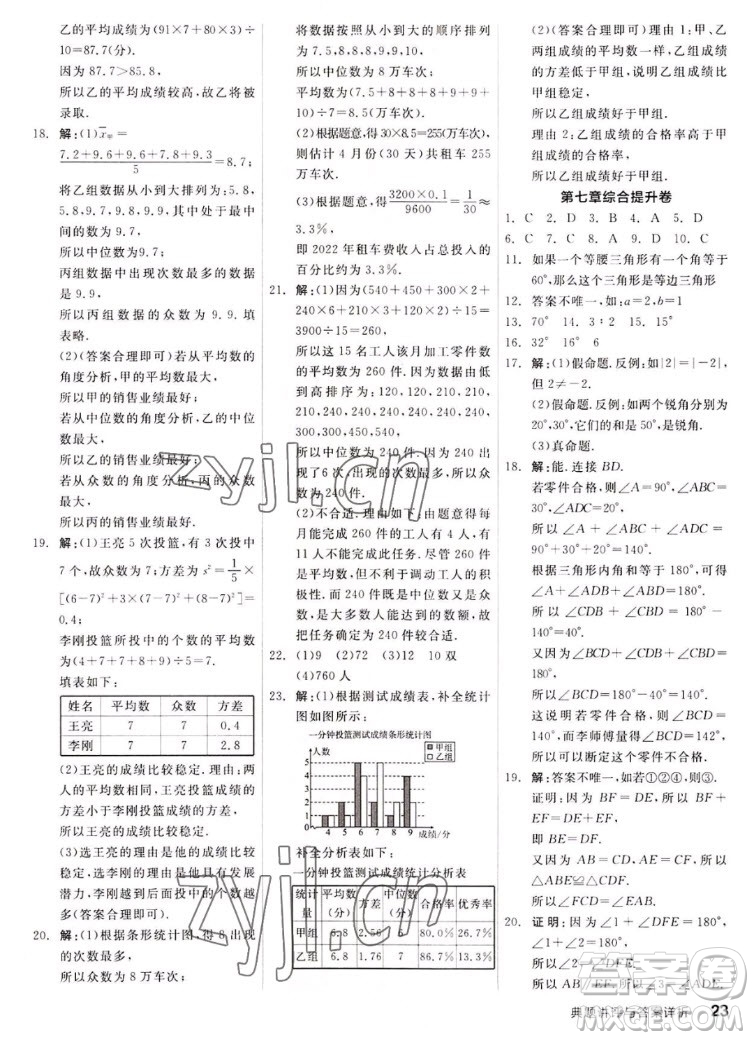 乙的平均成绩为(91×7+80×3)÷
10=87.7(分).
因为 87.7>85.8,
所以乙的平均成绩较高,故乙将被
录取.
18. 解:(1)x̄甲=
(7.2+9.6+9.6+7.8+9.3)/5=8.7;
将乙组数据从小到大排列为:5.8,
5.8,9.7,9.8,9.9,其中处于最中
间的数为 9.7,
所以中位数为9.7.
丙组数据中出现次数最多的数据
是 9.9,
所以丙组数据的众数为 9.9. 填
表略.
(2)(答案合理即可)若从平均数的
角度分析,甲的平均数最大,
所以甲的销售业绩最好;
若从中位数的角度分析,乙的中位
数最大,
所以乙的销售业绩最好;
若从众数的角度分析,丙的众数
最大,
所以丙的销售业绩最好.
19. 解:(1)王亮 5 次投篮,有 3 次投中
7 个,故众数为 7;方差为 s²=1/5×
[(6-7)²+3×(7-7)²+(8-7)²]=
0.4;
李刚投篮所投中的个数的平均数
为(4+7+7+8+9)÷5=7.
填表如下:
姓名 平均数 众数 方差
王亮 7 7 0.4
李刚 7 7 2.8
(2)王亮的成绩比较稳定. 理由:两
人的平均数相同,王亮投篮成绩的
方差小于李刚投篮成绩的方差,
所以王亮的成绩比较稳定.
(3)选王亮的理由是他的成绩比较
稳定,选李刚的理由是他具有发展
潜力,李刚越到后面投中的个数越
多(答案合理即可).
20. 解:(1)根据条形统计图,得 8 出现
的次数最多,
所以众数为 8 万车次;
将数据按照从小到大的顺序排列
为 7.5,8,8,8,9,9,10,
所以中位数为 8 万车次;
平均数为(7.5+8+8+8+9+9+
10)÷7=8.5(万车次).
(2)根据题意,得 30×8.5=255(万车次),
则估计 4 月份(30 天)共租车 255
万车次.
(3)根据题意,得(3200×0.1)/9600=1/30≈
3.3%,
即 2022 年租车费收入占总投入的
百分比约为 3.3%.
21. 解:(1)因为(540+450+300×2+
240×6+210×3+120×2)÷15=
3900÷15=260,
所以这 15 名工人该月加工零件数
的平均数为 260 件. 因为数据由低
到高排序为:120,120,210,210,
210,240,240,240,240,240,240,
300,300,450,540,
所以中位数为 240 件. 因为 240 出
现了6 次,出现的次数最多,所以众
数为 240 件.
(2)不合适. 理由如下:由题意若每
月能完成 260 件的工人有 4 人,有
11 人不能完成此任务. 尽管 260 件
是平均数,但不利于调动工人的积
极性. 而 240 件既是中位数又是众
数,是大多数人能达到的数额,故
把任务确定为 240 件较合适.
22. (1)760 (2)72 (3)12 10 双
(4)912 人
23. 解:(1)根据测试成绩表,补全统计
图如图所示:
一分钟投篮测试成绩条形统计图
人数
甲组
乙组
5
4
3
2
1
4 5 6 7 8 9 成绩/分
补全分析表如下:
一分钟投篮测试成绩统计分析表
统计量 平均数(分) 方差 中位数(分) 合格率 优秀率
甲组 6.8 2.56 6 80.0% 26.7%
乙组 6.8 1.76 7 86.7% 13.3%
(2)(答案合理即可)理由 1:甲、乙
两组成绩的平均数一样,乙组成绩
的方差低于甲组,说明乙组成绩
稳定,
所以乙组成绩好于甲组.
理由 2:乙组成绩的合格率高于甲
组成绩的合格率,
所以乙组成绩好于甲组.
第七章综合提升卷
1. C 2. D 3. C 4. D 5. A
6. C 7. C 8. A 9. D 10. C
11. 如果一个等腰三角形有一个角等于
60°,那么这个三角形是等边三角形
12. 答案不唯一,如:a=2,b=1
13. 70° 14. 3∶2 15. 15°
16. 32° 16° 6
17. 解:(1)假命题. 反例:如|2|=|-2|,
但 2≠-2.
(2)假命题. 反例:如两锐角分别为
20°,30°,它们的和是锐角.
(3)真命题.
18. 解:能. 连接 BD.
若零件合格,则∠A=90°,∠ABC+
∠ADC=20°+30°,
所以∠A+∠ABC+∠ADC=
90°+30°+20°=140°.
根据三角形内角和为 180°,可得
∠A+∠ADB+∠ABD=180°,
所以∠CDB+∠CBD=180°-
140°=40°.
又因为∠CDB+∠CBD+
∠BCD=180°,
所以∠BCD=180°-40°=140°.
故若零件合格,则∠BCD=140°.
因此,李师傅量得∠BCD=142°,
就断定这个零件不合格.
19. 解:答案不唯一,如若①②④,则③.
证明:因为 BF=DE,所以 BF+
EF=DE+EF,
即 BE=DF.
又因为 AB=CD,AE=CF,所以
△ABE≌△CDF,
所以∠FCD=∠EAB.
20. 证明:因为∠1+∠DFE=180°,
∠1+∠2=180°,
所以∠2=∠DFE,
所以 AB∥EF,所以∠3=∠ADE.
典题讲理与答案详析 23
zyjl.cn
zyjl.cn
答案圈